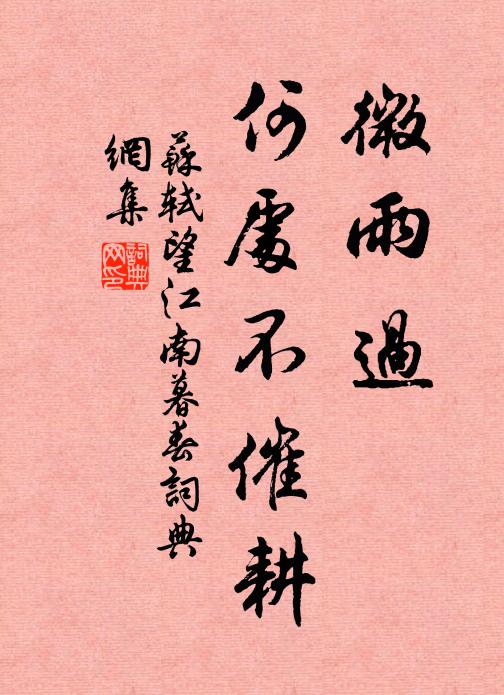 微雨過
何處不催耕
蘇軾望江南暮春詞典
網集
詞典
网印